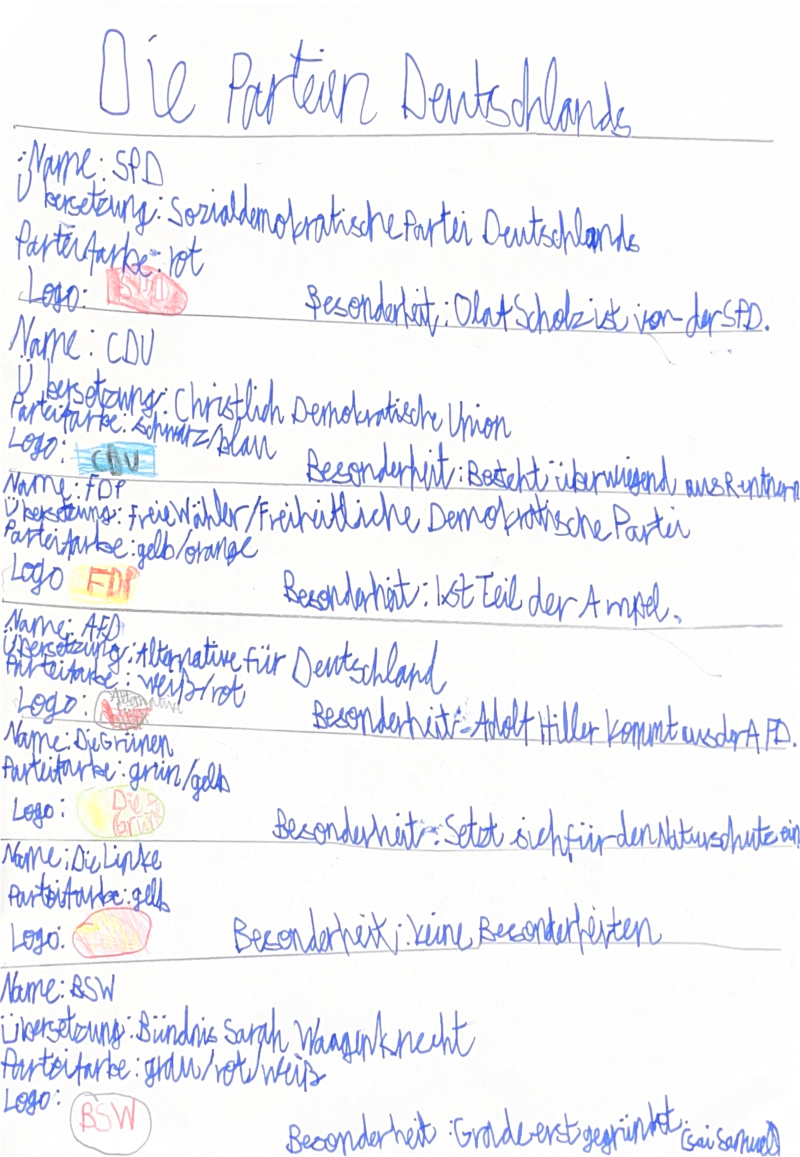 Die Parteien Deutschlands
Name: SPD
Übersetzung: Sozialdemokratische Partei Deutschlands
Parteifarbe: rot
Logo: SPD Besonderheit: Olaf Scholz ist von der SPD.
Name: CDU
Übersetzung: Christlich Demokratische Union
Parteifarbe: schwarz/blau
Logo: CDU Besonderheit: Besteht überwiegend aus Rentnern
Name: FDP
Übersetzung: Freie Wähler/Freiheitliche Demokratische Partei
Parteifarbe: gelb/orange
Logo FDP Besonderheit: Ist Teil der Ampel.
Name: AFD
Übersetzung: Alternative für Deutschland
Parteifarbe: weiß/rot
Logo: Alternative Besonderheit: Adolf Hitler kommt aus der AFD.
Name: Die Grünen
Parteifarbe: grün/gelb
Logo: Die Grüne Besonderheit: Setzt sich für den Naturschutz ein
Name: Die Linke
Parteifarbe: gelb
Logo: Besonderheit: keine Besonderheiten
Name: BSW
Übersetzung: Bündnis Sarah Waagenknecht
Parteifarbe: grau/rot/weiß
Logo: BSW
Besonderheit: Grade erst gegründet.